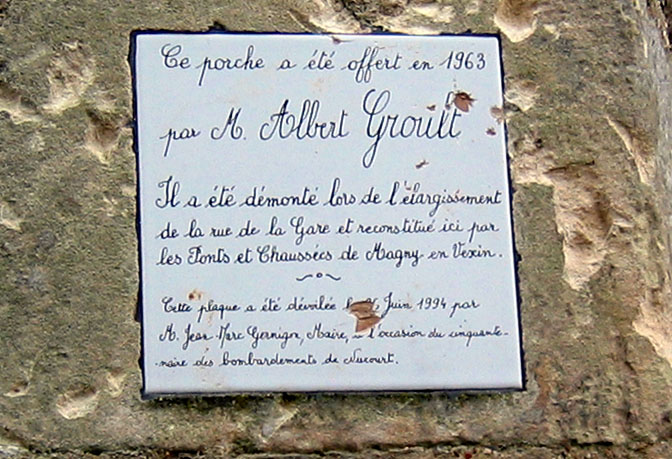 Ce porche a été offert en 1963
par M. Albert Groult
Il a été démonté lors de l'élargissement
de la rue de la Gare et reconstitué ici par
les Ponts et Chaussées de Magny en Vexin.
Cette plaque a été dévoilée Juin 1994 par
M. Jean-Marc Gernigon, Maire, l'occasion du cinquante-
-naire des bombardements de Nucourt.